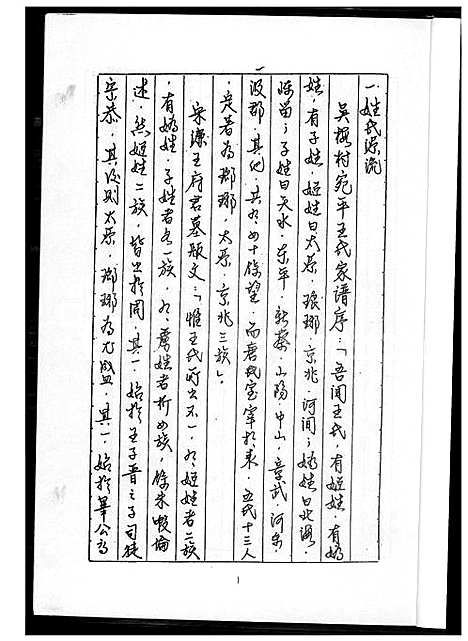 一、姓氏源流
吳㧞村宛平王氏家譜序：「吾聞王氏，有姬姓，有媯
姓，有子姓，姬姓曰太原，琅琊，京兆，河間；媯姓曰北海，
陳留；子姓曰天水，東平，新蔡，山陽，中山，章武，河東，
汲郡，其他，共二十餘望，而唐氏宰相，王氏十三人
，定著為瑯琊，太原，京兆三族」。
宋濂王府君墓版文：「惟王氏所出不一，姬姓者二族
，有媯姓，子姓者各一族，虜姓者析四族，餘未暇論
述，然姬姓二族，皆出於周，其一，始於王子晉之子司徒
宗恭，其後則太原，瑯琊為尤盛，其一，始於畢公高
1